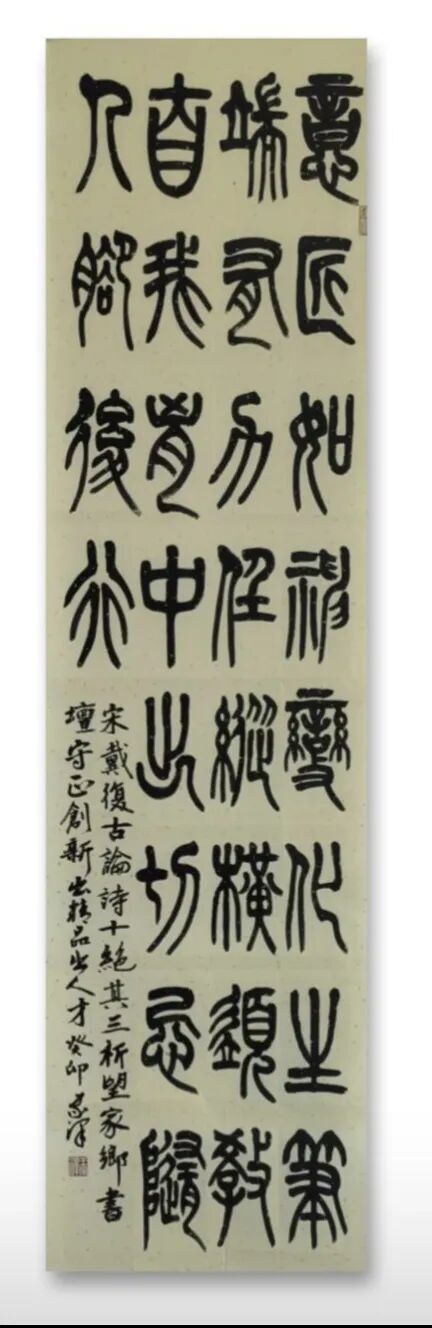 意匠如神變化生筆
端有力任縱橫須教
自我胸中出切忌隨
人腳後行
宋戴復古論詩十絕其三祈望家鄉書
壇守正創新出精品出人才癸卯